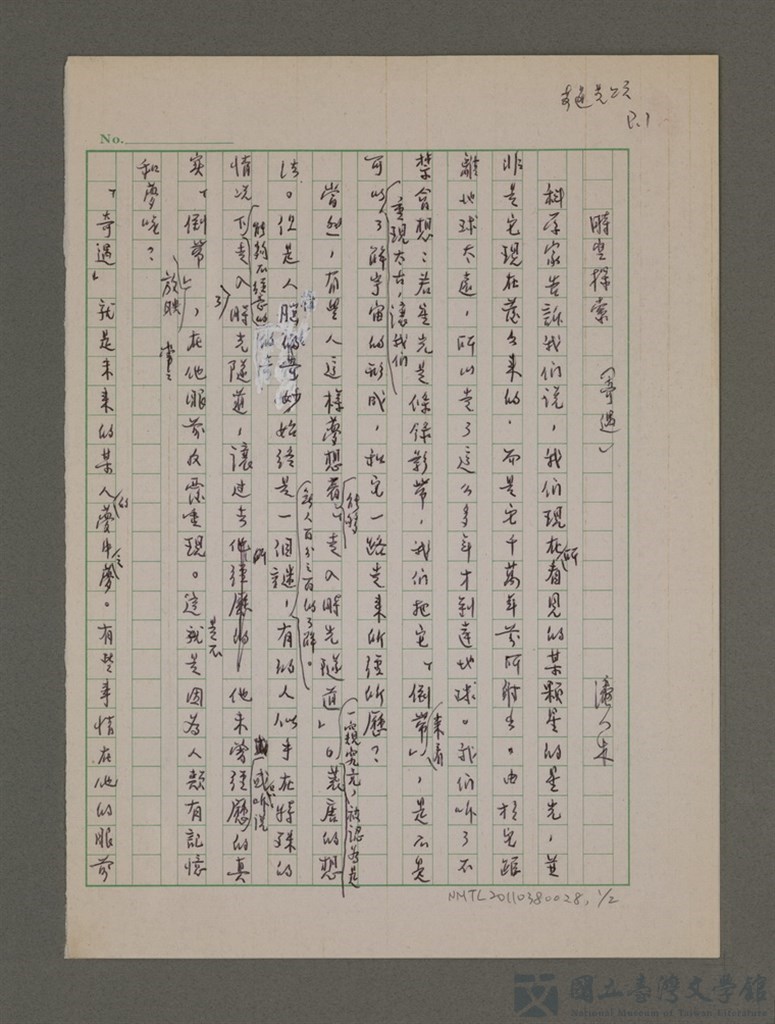 P.1
No.
時空探索 (奇遇)
科學家告訴我们说，我们現在所看見的某顆星的星光，並
非是它現在發出来的，而是它千萬年前所射出。由於它距
離地球太遠，所以走了這么多年才到達地球。我们听了不
禁會想：若是光是條錄影帶，我们把它「倒帶」来看，是不是
可以重現太古，讓我们了解宇宙的形成，和它一路走来所經所歷？
當然，有些人這樣夢想著能够「走入時光隧道」，一窺究竟，被認為是荒唐的想
法。但是人腦的奇妙始終是一個謎，有的人似乎在特殊的
情況下走入了時光隧道，讓过去所經歷的，他未曾經歷的或听说真
实「倒帶」，在他眼前反覆重現。這就是不是因為人類有記憶
和夢境？
「奇遇」就是未来的某人的夢中之夢。有些事情在他的眼前
NMTL20110380028, 1/2
國立臺灣文學館
National Museum of Taiwan Literature